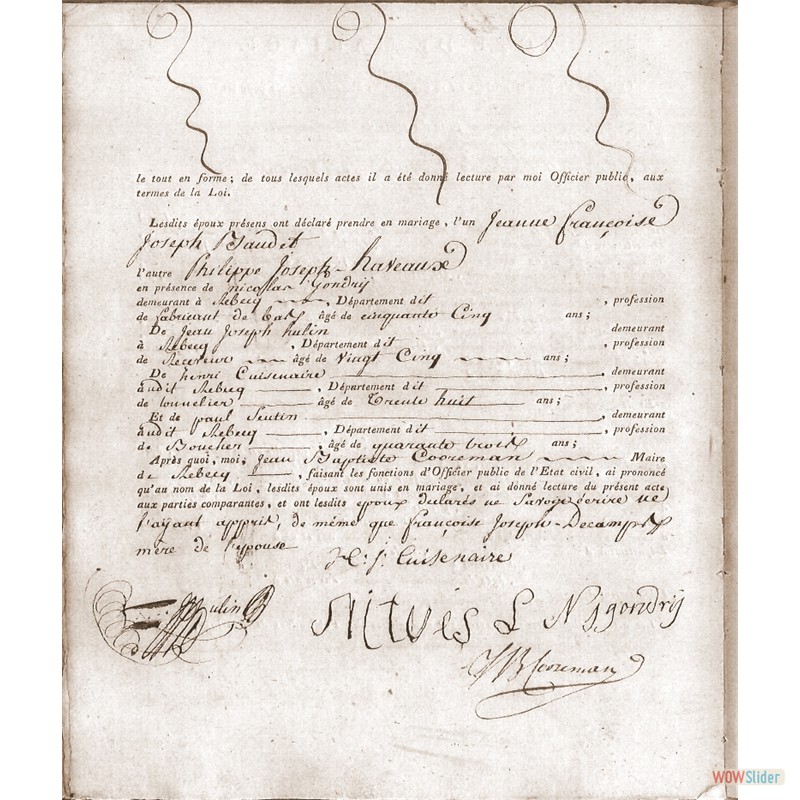 le tout en forme; de tous lesquels actes il a été donné lecture par moi Officier public, aux
termes de la Loi.
Lesdits époux présens ont déclaré prendre en mariage, l'un Jeanne françoise
Joseph Baudet
l'autre Philippe Joseph haveaux
en présence de nicolas Gondrij
demeurant à Rebecq, Département dit, profession
de fabricant de bas, âgé de cinquante Cinq ans;
De Jean Joseph hulin demeurant
à Rebecq, Département dit, profession
de Receveur âgé de Vingt Cinq ans;
De henri Cuisenaire demeurant
audit Rebecq, Département dit, profession
de tonnelier âgé de Trente huit ans;
Et de paul demeurant
audit Rebecq, Département dit, profession
de Boucher, âgé de quarante trois ans;
Après quoi, moi, Jean Baptiste Cooreman Maire
de Rebecq, faisant les fonctions d'Officier public de l'Etat civil, ai prononcé
qu'au nom de la Loi, lesdits époux sont unis en mariage, et ai donné lecture du présent acte,
aux parties comparantes, et ont lesdits epoux declarés ne Savoir écrire ne
l'ayant appris, de même que françoise Joseph Decamps
mère de l'epouse
H: J: Cuisenaire
hulin
N j gondrij
J B Cooreman
WOWSlider